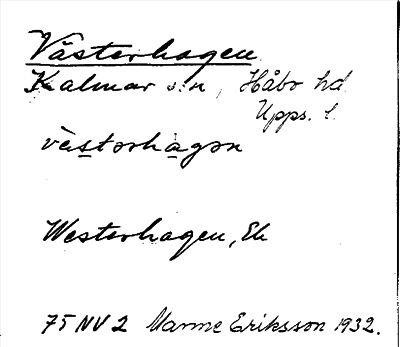 Västerhagen
Kalmar sn, Håbo hd
Upps. l.
vèstərhàgən
Westerhagen, Ek
75 NV 2 Manne Eriksson 1932.